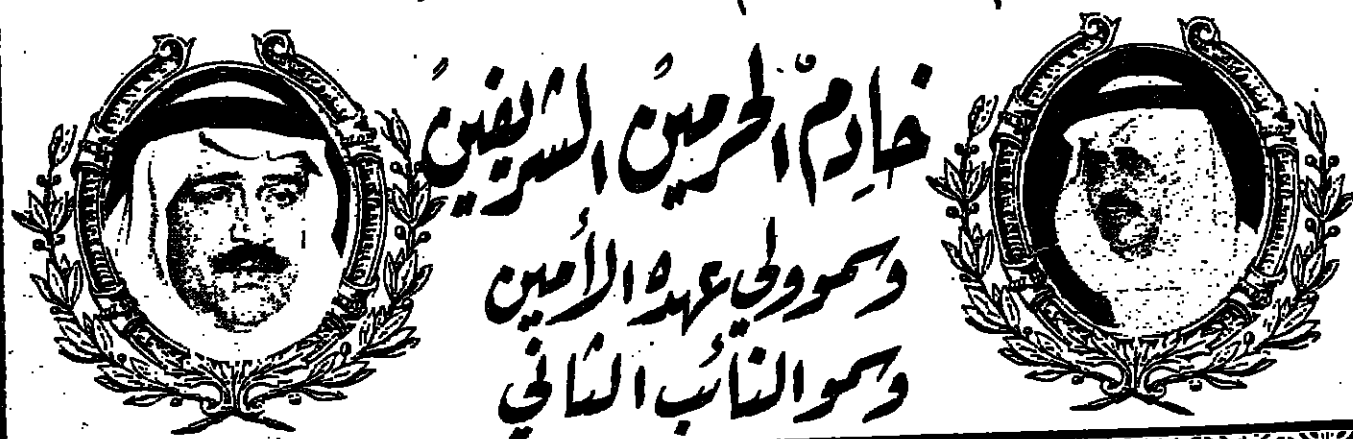 خادم الحرمين الشريفين
وسمو ولي عهده الأمين
وسمو النائب الثاني